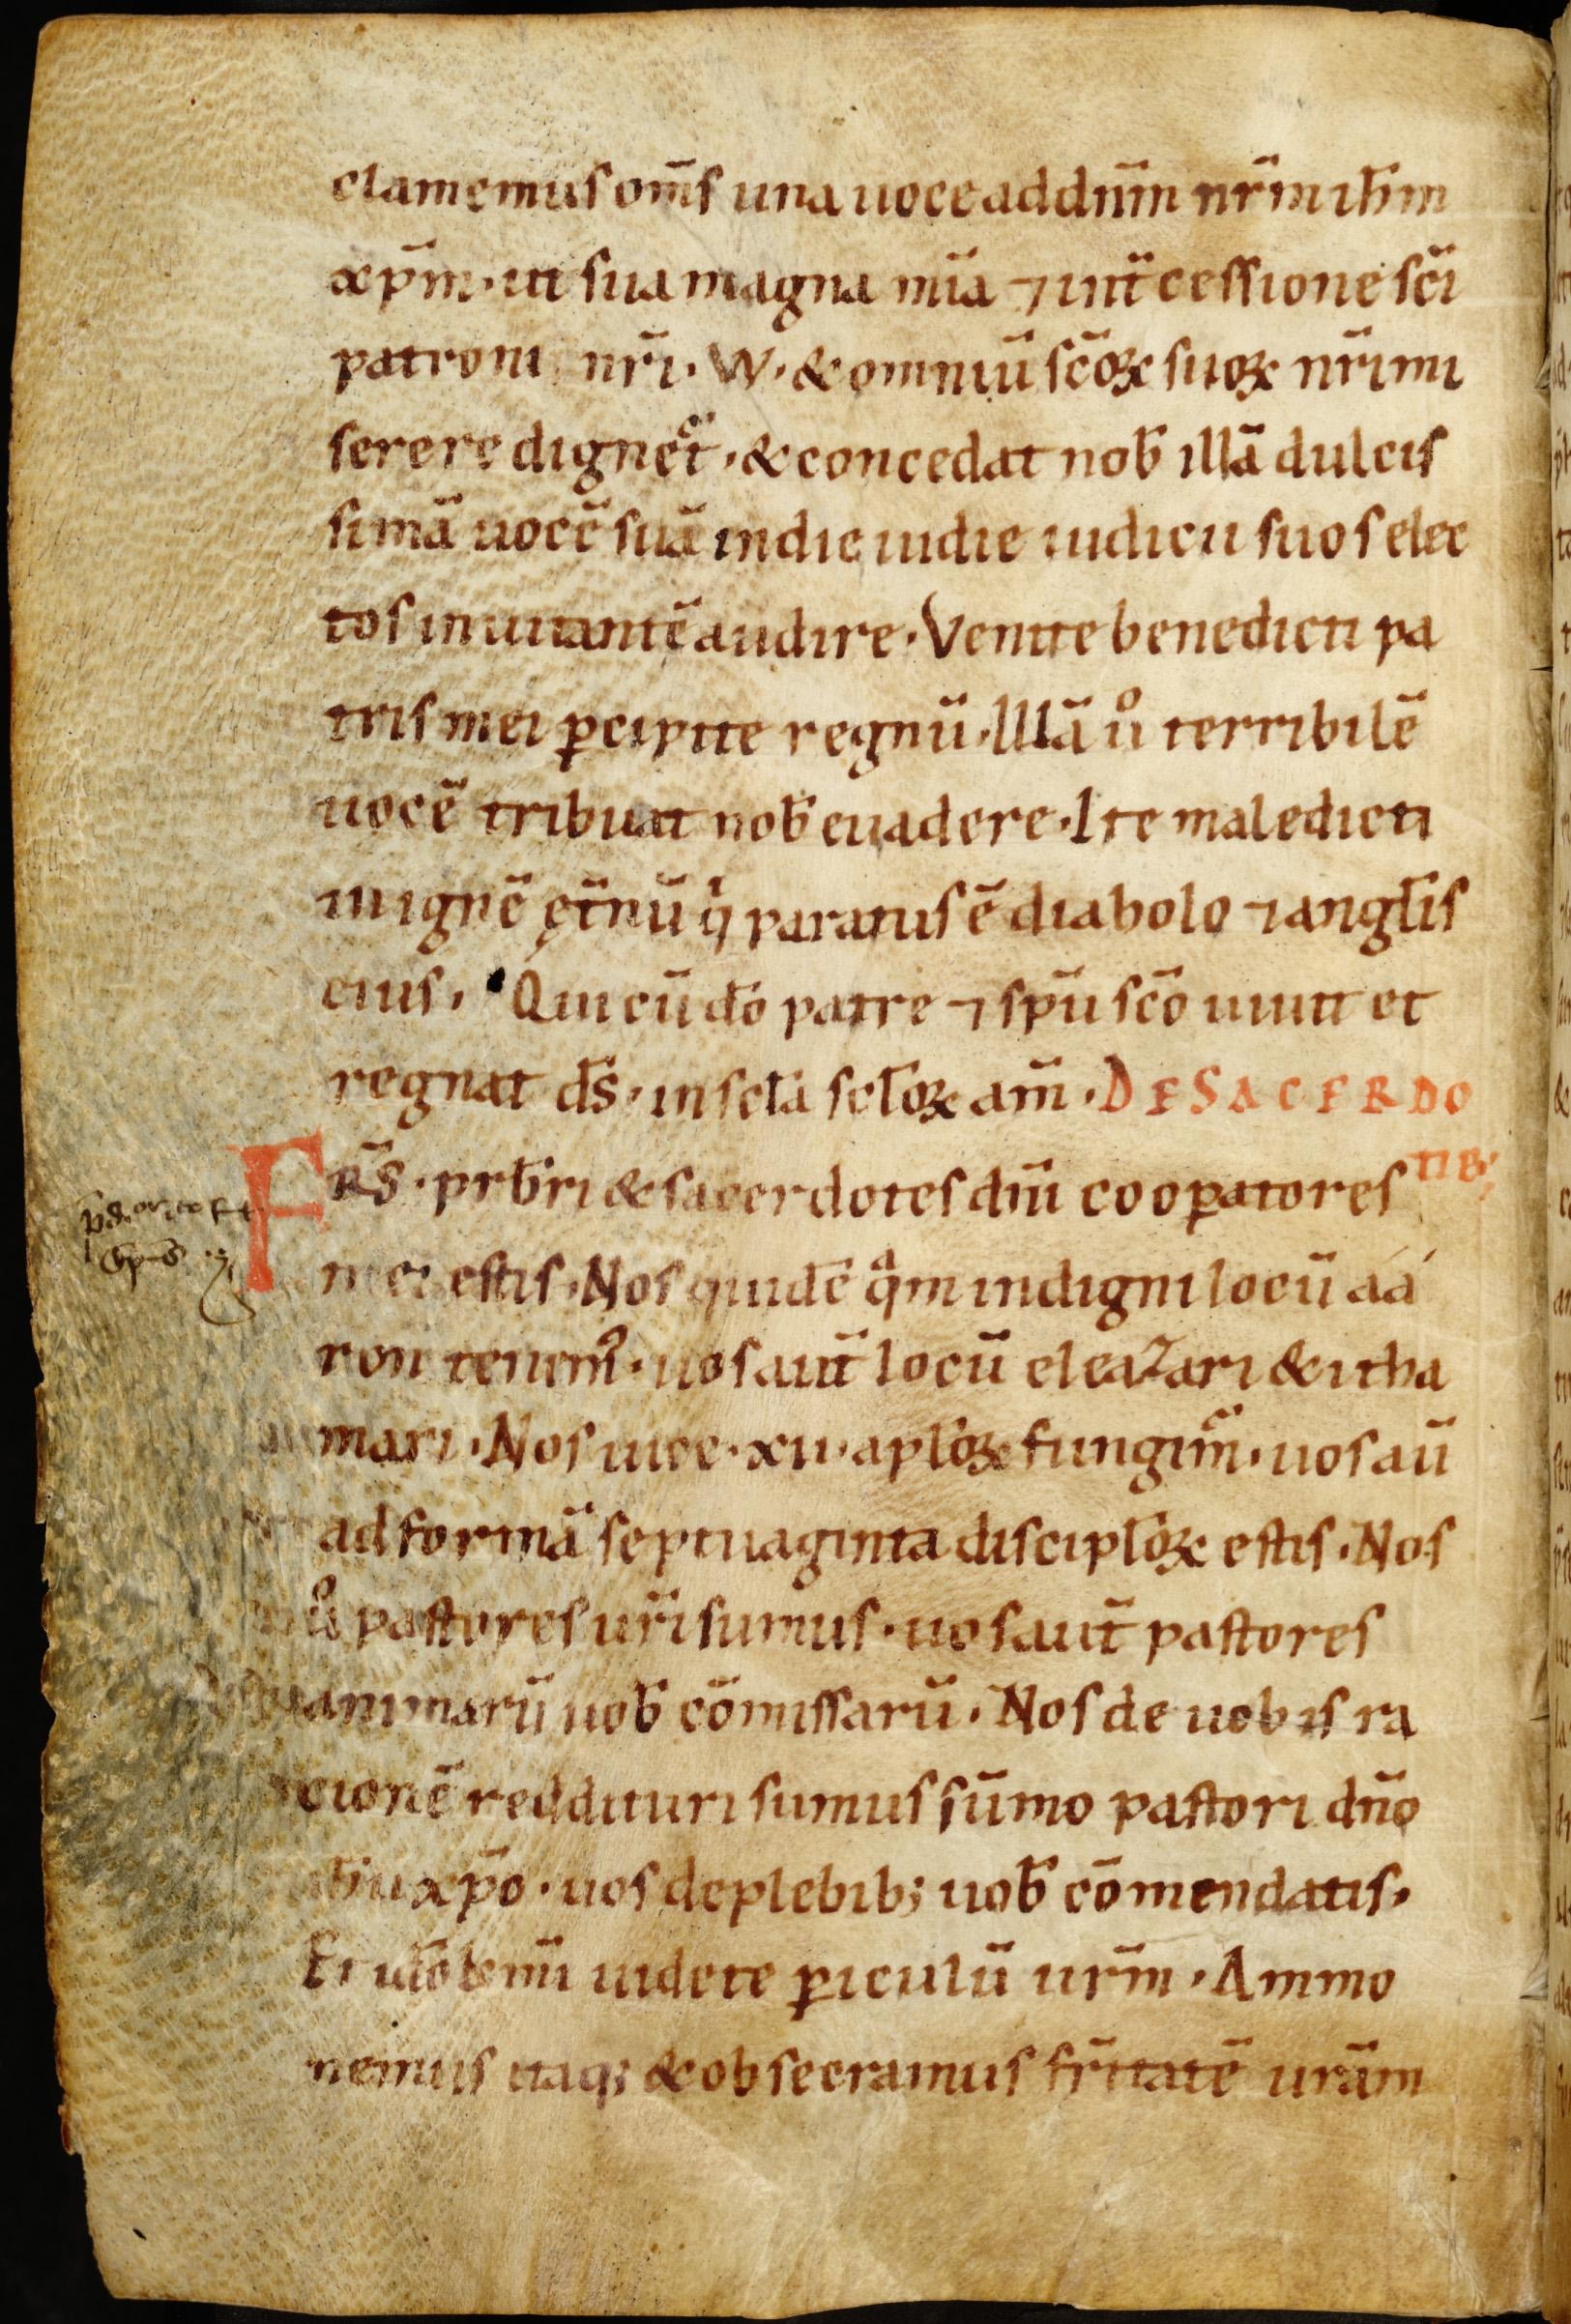 clamemus om̄s una uoce ad dnm̄ nr̄m ih̄m
xp̄m· ut sua magna mīa ⁊ int̄cessione sc̄i
patroni nr̄i· W· & omniū sc̄oꝝ suoꝝ nr̄i mi
serere dignet᷑· & concedat nob̄ illā dulcis
simā uocē suā in die iudie iudicii suos elec
tos inuitantē audire· Venite benedicti pa
tris mei ꝑcipite regnū· Illā uͦ terribilē
uocē tribuat nob̄ euadere· Ite maledicti
in ignē ęt̄nū qͥ paratus ē diabolo ⁊ angl̄is
eius· Qui cū dō patre ⁊ sp̄u sc̄o uiuit et
regnat ds̄· in scl̄a scl̄oꝝ am̄· DE SACERDO
TIB;
FRS̄· prb̄ri & sacerdotes dn̄i cooꝑatores
mei estis· Nos quidē qᵃm indigni locū áá
ron tenemꝰ· uos aut̄ locū eleazari & itha
mari· Nos uice· xii· apl̄oꝝ fungim᷑· uos aū
ad formā septuaginta discipl̄oꝝ estis· Nos
uͦ pastores ur̄i sumus· uos aut̄ pastores
animarū uob̄ cōmissarū· Nos de uobis ra
cionē reddituri sumus sūmo pastori dn̄o
ih̄u xp̄o· uos de plebib; uob̄ cōmendatis·
Et idō uidete ꝑiculū ur̄m· Ammo
nemus itaq; & obsecramus fr̄nitatē urām